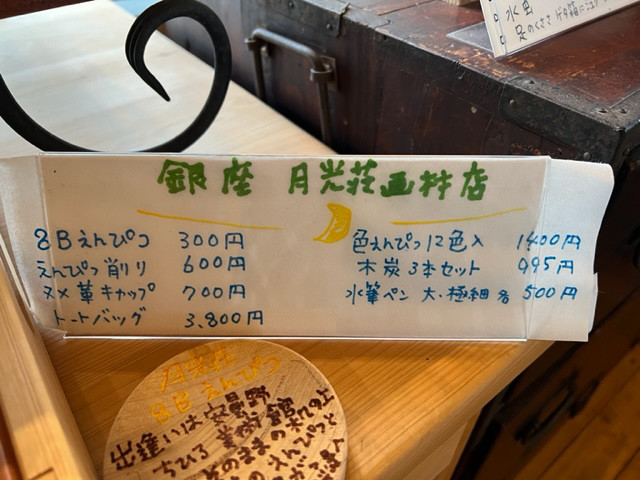 水虫
足のくさ
銀座 月光荘画材店
8Bえんぴつ 300円
えんぴつ削り 600円
ヌメ革キャップ 700円
トートバッグ 3,800円
色えんぴつ12色入 1400円
木炭3本セット 995円
水筆ペン 大・極細 各 500円
月光荘
8Bえんぴつ
出逢いは安曇野
ちひろ美術館
そのままの木の上
のえんぴつと